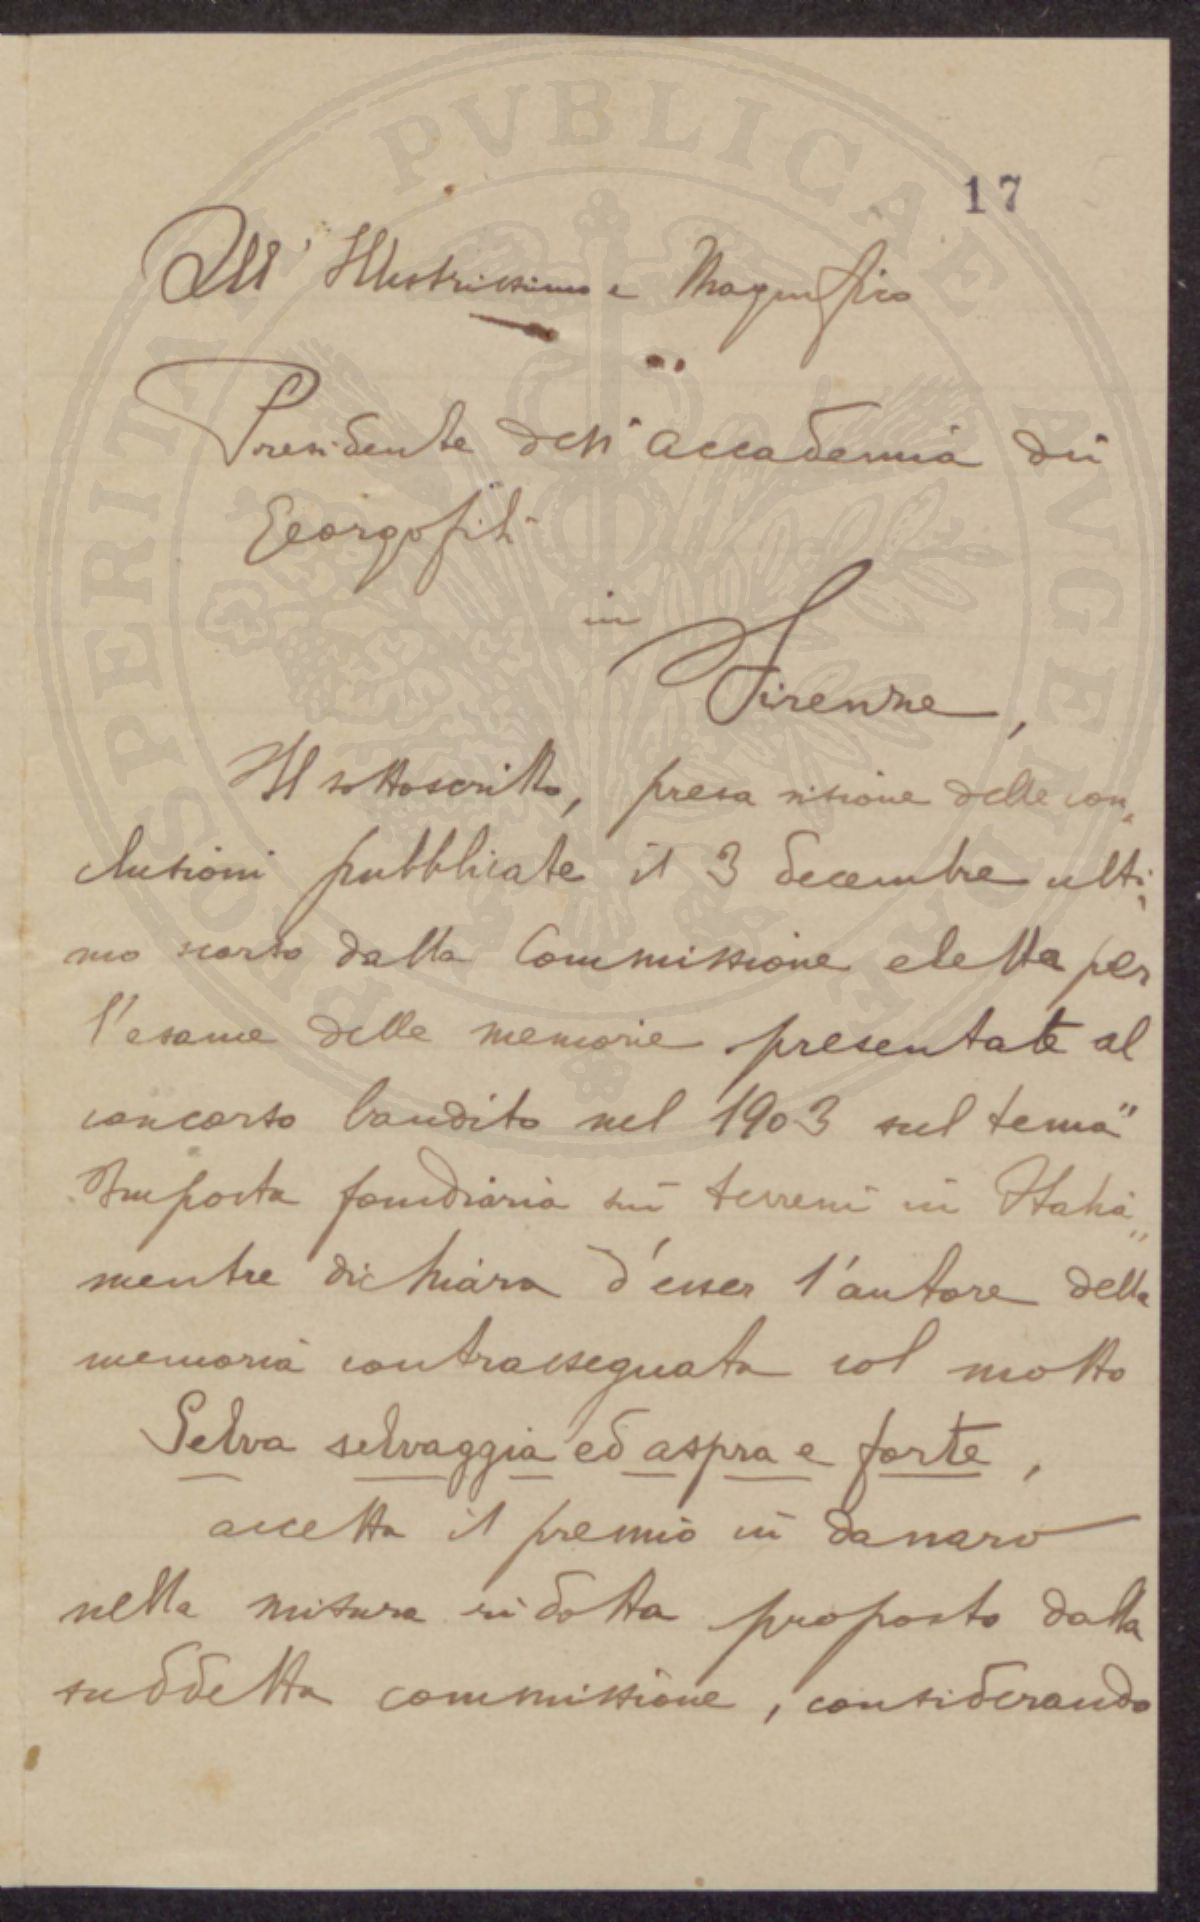 PROSPERITATI PVBLICAE AVGENDAE
17
All' Illustrissimo e Magnifico
Presidente dell'accademia dei
Georgofili
in
Firenze,
Il sottoscritto, presa visione delle con,
clusioni pubblicate il 3 decembre ulti,
mo scorso dalla Commissione eletta per
l'esame delle memorie presentate al
concorso bandito nel 1903 sul tema "
Imposta fondiaria sui terreni in Italia "
mentre dichiara d'esser l'autore della
memoria contrassegnata col motto
Selva selvaggia ed aspra e forte,
accetta il premio in danaro
nella misura ridotta proposto dalla
suddetta commissione, considerando